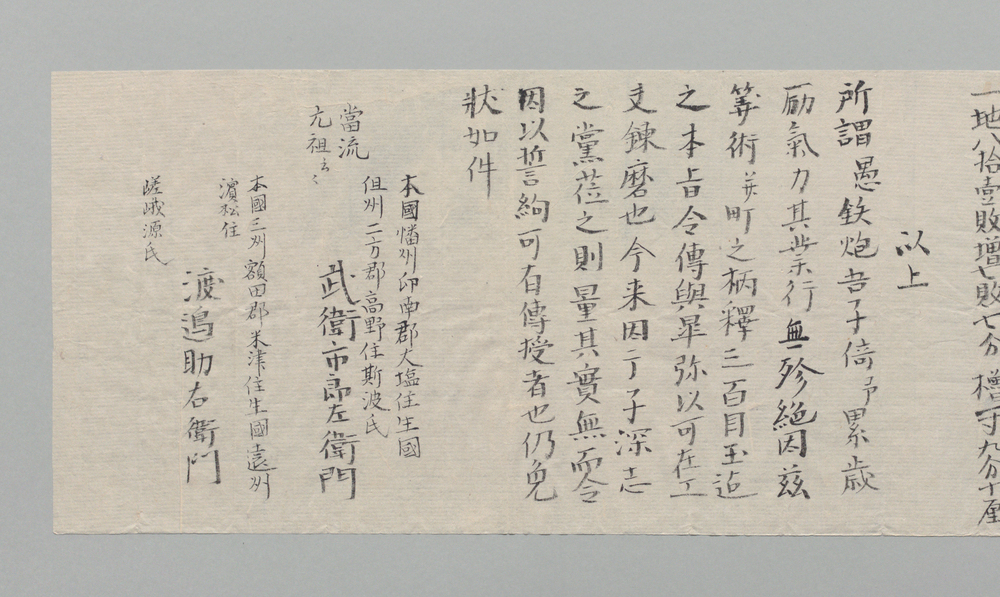 一地八拾壹散増七散七分 橹寸九分十厘
以上
所謂愚鉄炮吾子倚予累歳
励氣力其業行無殄絶因茲
筭術并町之柄釋三百目玉迠
之本旨令傳與畢弥以可在工
支錬磨也今来因于子深志
之黨莅之則量其實無而令
因以誓約可有傳授者也仍免
状如件
本國幡州印南郡大塩住生國
但州二方郡高野住斯波氏
當流
元祖云々
武衛市郎左衛門
本國三州額田郡米津住生國遠州
濵松住
渡邉助右衛門
嵯峨源氏